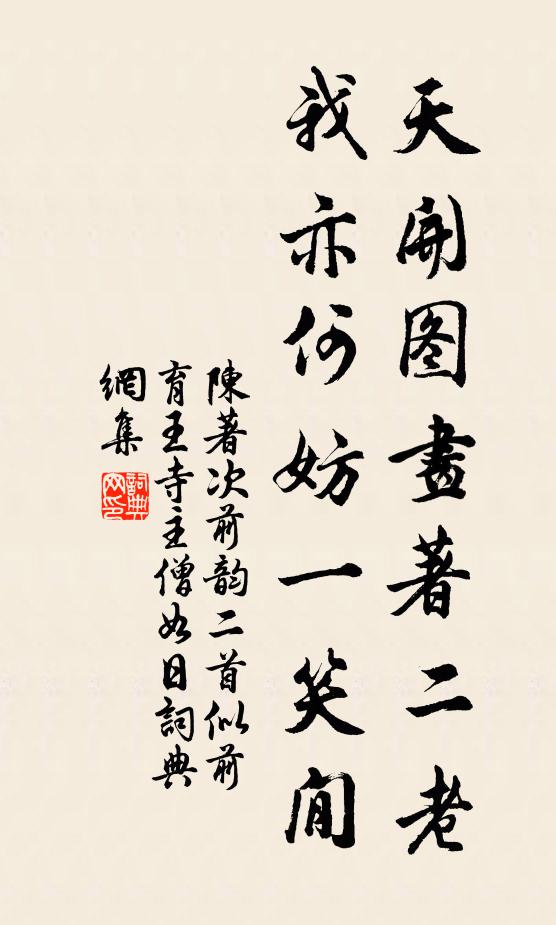 天開图畫著二老
我亦何妨一笑間
陳著次前韵二首似前
育王寺主僧如日詞典
網集
詞典网印